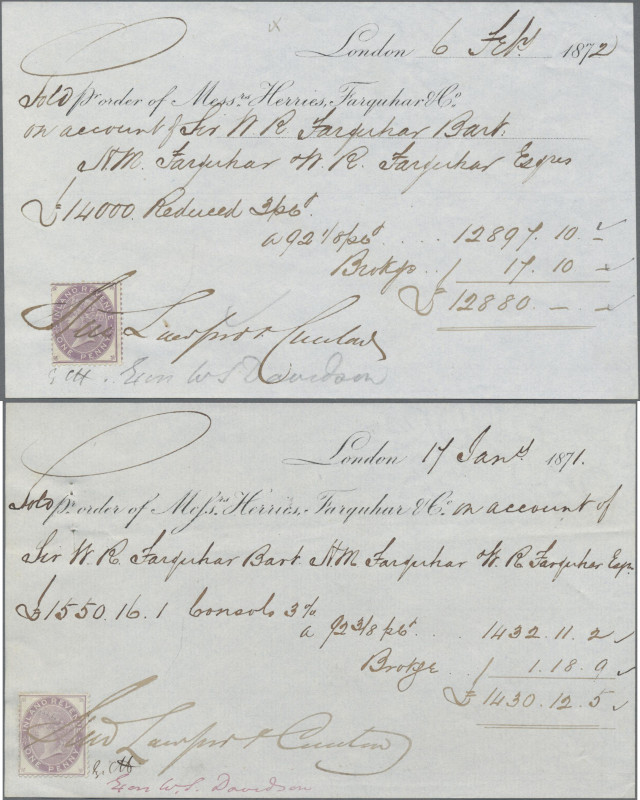 London 6 Feby 1872
Sold pr order of Messrs Herries, Farquhar & Co.
on account of Sir W. R. Farquhar Bart.
H. M. Farquhar & W. R. Farquhar Esqres
£14000 Reduced 3 p ct
a 92 1/8 p ct .... 12897. 10. -
Brokge .. 17. 10 -
£ 12880 - -
INLAND REVENUE
ONE PENNY
Lawford &
Exon W S Davidson
London 17 Jany 1871.
Sold pr order of Messrs Herries, Farquhar & Co. on account of
Sir W. R. Farquhar Bart. H M Farquhar & W. R. Farquhar Esqrs
£1550. 16. 1 Consols 3 %
a 92 3/8 p ct ... 1432. 11. 2
Brokge ... 1. 18. 9
£ 1430. 12. 5
INLAND REVENUE
ONE PENNY
Lawford &
Exon W. S. Davidson